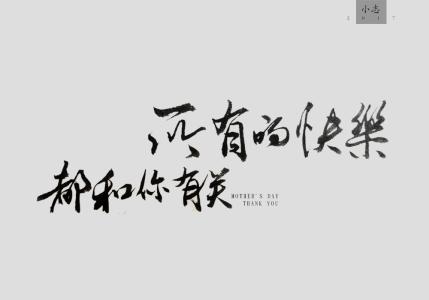 小志
2017
所有的快樂
都和你有关
MOTHER'S DAY
THANK YOU